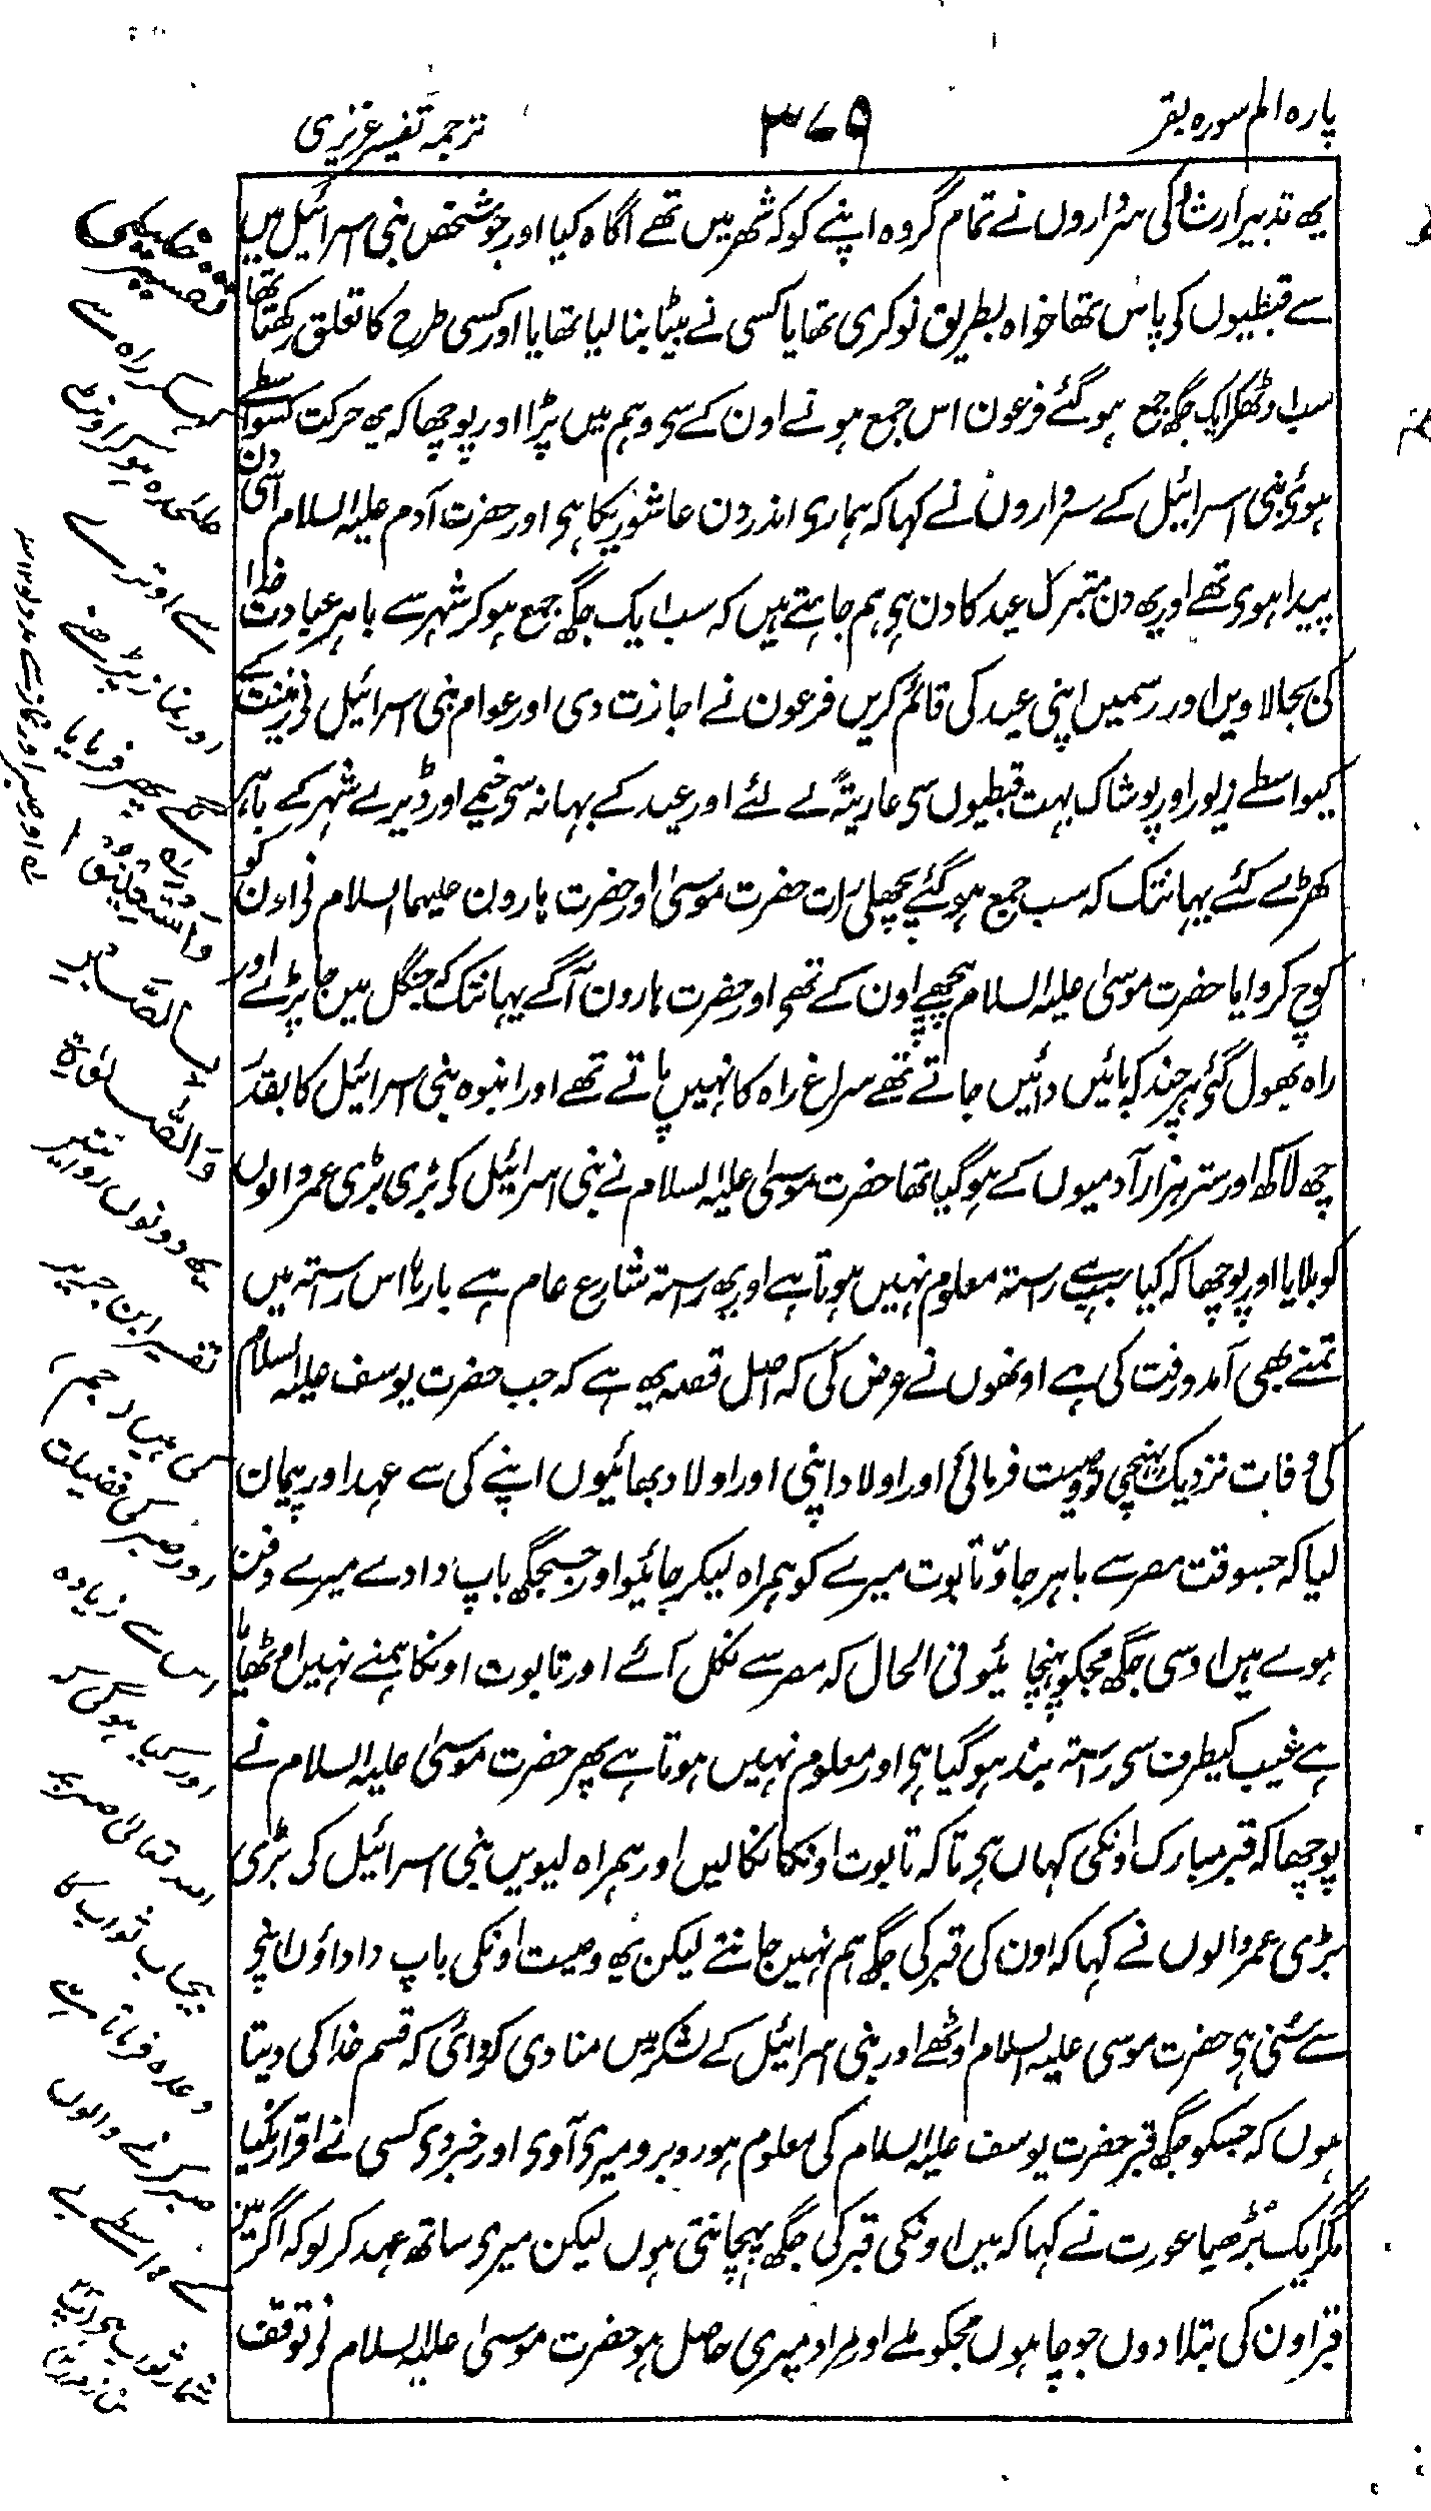 پارہ الم سورہ بقر
۳۷۹
ترجمہ تفسیر عزیزی
یہ تدبیر ارشاد کی سرداروں نے تمام گروہ اپنے کو کہ شہر میں تھے آگاہ کیا اور جو شخص بنی اسرائیل میں
سے قبطیوں کی پاس تھا خواہ بطریق نوکری تھا یا کسی نے بیٹا بنا لیا تھا یا اور کسی طرح کا تعلق رکھتا تھا
سب اوٹھکر ایک جگہ جمع ہو گئے فرعون اس جمع ہونے اون کے سی وہم میں پڑا اور پوچھا کہ یہ حرکت کسواسطے
ہوئی بنی اسرائیل کے سرداروں نے کہا کہ ہماری اندر دن عاشوریکا ہی اور حضرت آدم علیہ السلام اسی دن
پیدا ہوی تھے اور یہ دن متبرک عید کا دن ہی ہم چاہتے ہیں کہ سب ایک جگہ جمع ہو کر شہر سے باہر عبادت خدا
کی بجا لاویں اور رسمیں اپنی عید کی قائم کریں فرعون نے اجازت دی اور عوام بنی اسرائیل نی زینت کے
کیواسطے زیور اور پوشاک بہت قبطیوں سی عاریتہً لے لئے اور عید کے بہانہ سی خیمے اور ڈیرے شہر کے باہر
کھڑے کئے یہانتک کہ سب جمع ہو گئے پچھلی رات حضرت موسیٰ اور حضرت ہارون علیہما السلام نی اون کو
کوچ کروایا حضرت موسیٰ علیہ السلام پیچھے اون کے تھی اور حضرت ہارون آگے یہانتک کہ جنگل میں جا پڑے اور
راہ بھول گئی ہر چند کہ بائیں دائیں جاتے تھے سراغ راہ کا نہیں پاتے تھے اور انبوہ بنی اسرائیل کا بقدر
چھ لاکھ اور ستر ہزار آدمیوں کے ہو گیا تھا حضرت موسیٰ علیہ السلام نے بنی اسرائیل کی بڑی بڑی عمر والوں
کو بلایا اور پوچھا کہ کیا سبب ہے رستہ معلوم نہیں ہوتا ہے اور یہ رستہ شارع عام ہے بارہا اس رستہ میں
تمنے بھی آمد و رفت کی ہے اونھوں نے عرض کی کہ اصل قصہ یہ ہے کہ جب حضرت یوسف علیہ السلام
کی وفات نزدیک پہنچی تو وصیت فرمائی اور اولاد اپنی اور اولاد بھائیوں اپنے کی سے عہد اور پیمان
لیا کہ جسوقت مصر سے باہر جاؤ تابوت میرے کو ہمراہ لیکر جائیو اور جسجگہ باپ دادے میرے دفن
ہوے ہیں اوسی جگہ مجکو پہنچائیو فی الحال کہ مصر سے نکل آئے اور تابوت اونکا ہمنے نہیں اٹھایا
ہے غیب کیطرف سی رستہ بند ہو گیا ہی اور معلوم نہیں ہوتا ہے پھر حضرت موسیٰ علیہ السلام نے
پوچھا کہ قبر مبارک اونکی کہاں ہی تاکہ تابوت اونکا نکالیں اور ہمراہ لیویں بنی اسرائیل کی بڑی
بڑی عمر والوں نے کہا کہ اون کی قبر کی جگہ ہم نہیں جانتے لیکن یہ وصیت اونکی باپ داداؤں اپنی
سے سنی ہی حضرت موسی علیہ السلام اوٹھے اور بنی اسرائیل کے لشکر میں منادی کروائی کہ قسم خدا کی دیتا
ہوں کہ جسکو جگہ قبر حضرت یوسف علیہ السلام کی معلوم ہو روبرو میری آوی اور خبر دی کسی نے اقرار نکیا
مگر ایک بڑھیا عورت نے کہا کہ میں اونکی قبر کی جگہ پہچانتی ہوں لیکن میری ساتھ عہد کر لو کہ اگر میں
قبر اون کی بتلا دوں جو چاہوں مجکو ملے اور مراد میری حاصل ہو حضرت موسیٰ علیہ السلام نی توقف
راہ سے
علیحدہ ہو کر اونٹ
سے اوترے
اور نماز پڑھنے
لگے پھر فرمایا
وَاسْتَعِيْنُوْا
بِالصَّبْرِ
وَالصَّلٰوةِ
یہ دونوں روایتیں
تفسیر ابن جریر
میں ہیں
اور صبر کی فضیلت
اس سے زیادہ
اور کیا ہو گی کہ
اللہ تعالیٰ صبر پر
بیحساب ثواب کا
وعدہ فرماتا ہے
صبر کرنے والوں
کے واسطے بے
شمار ثواب ہے